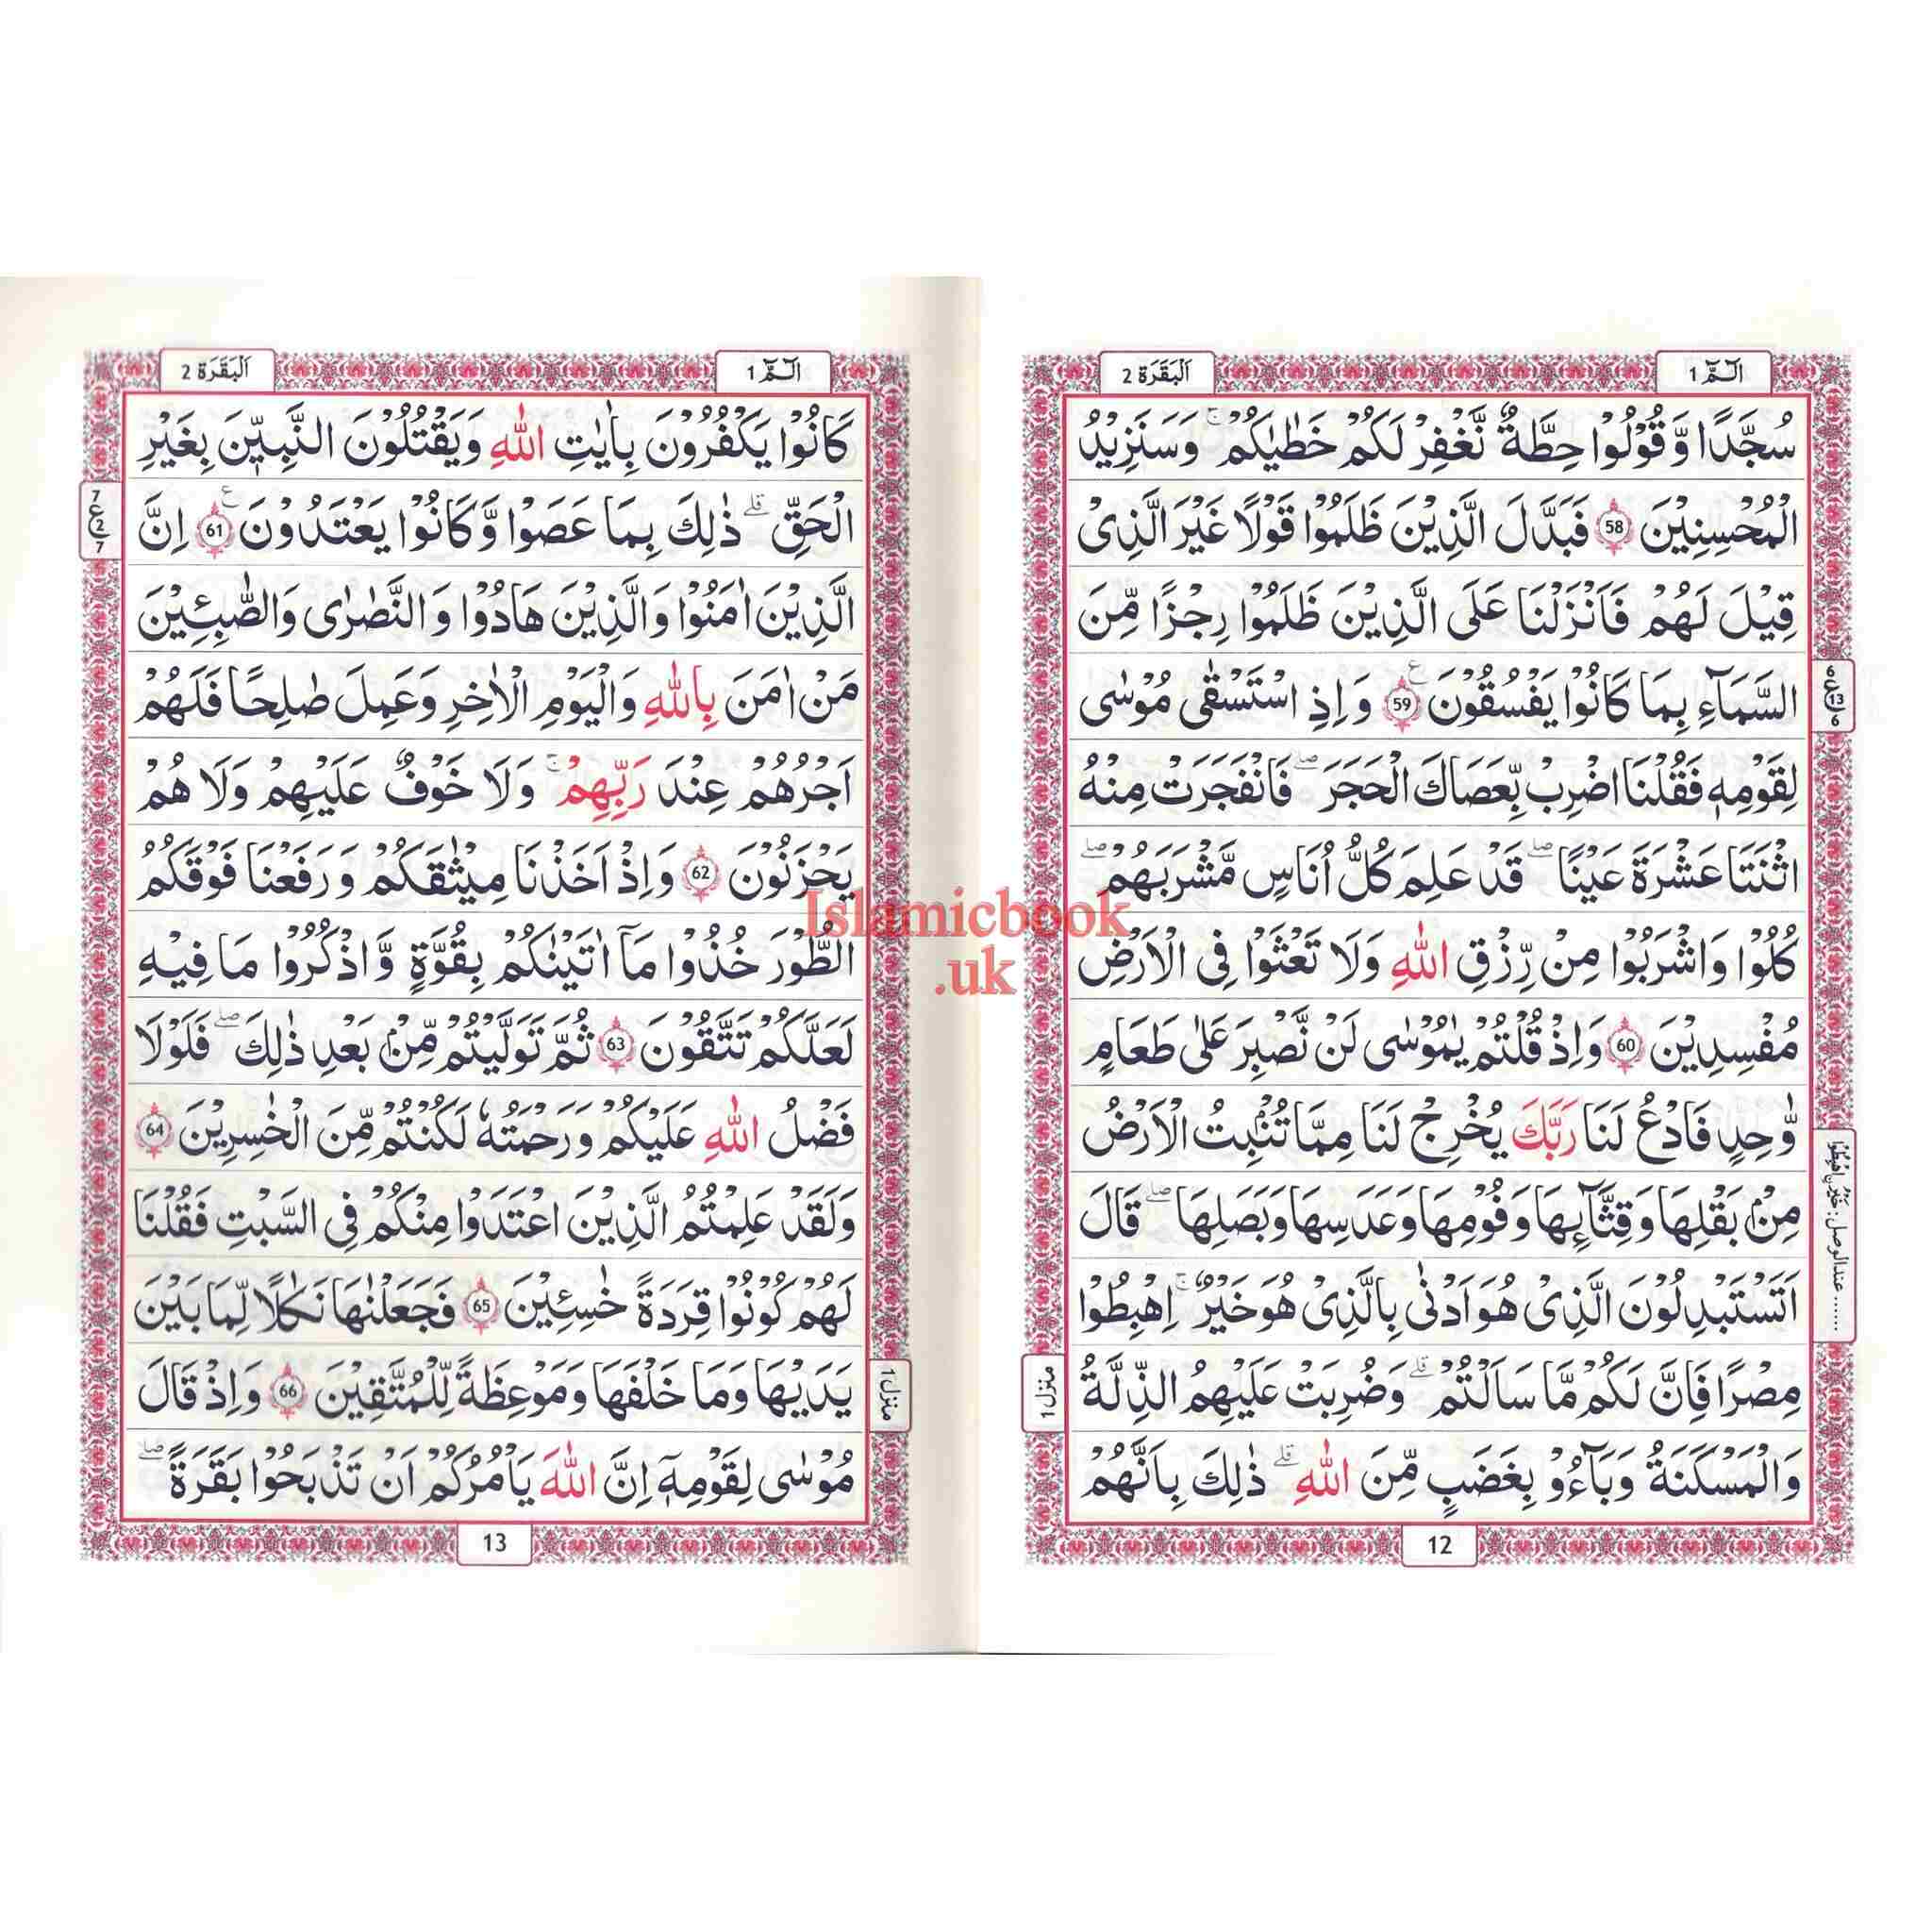 الٓمّٓ 1
اَلْبَقَرَة 2
سُجَّدًا وَّ قُوْلُوْا حِطَّةٌ نَّغْفِرْ لَكُمْ خَطٰیٰكُمْ ؕ وَ سَنَزِیْدُ
الْمُحْسِنِیْنَ 58 فَبَدَّلَ الَّذِیْنَ ظَلَمُوْا قَوْلًا غَیْرَ الَّذِیْ
قِیْلَ لَهُمْ فَاَنْزَلْنَا عَلَی الَّذِیْنَ ظَلَمُوْا رِجْزًا مِّنَ
السَّمَآءِ بِمَا كَانُوْا یَفْسُقُوْنَ ع 59 وَ اِذِ اسْتَسْقٰی مُوْسٰی
لِقَوْمِهٖ فَقُلْنَا اضْرِبْ بِّعَصَاكَ الْحَجَرَ ؕ فَانْفَجَرَتْ مِنْهُ
اثْنَتَا عَشْرَةَ عَیْنًا ؕ قَدْ عَلِمَ كُلُّ اُنَاسٍ مَّشْرَبَهُمْ ؕ
كُلُوْا وَ اشْرَبُوْا مِنْ رِّزْقِ اللّٰهِ وَ لَا تَعْثَوْا فِی الْاَرْضِ
مُفْسِدِیْنَ 60 وَ اِذْ قُلْتُمْ یٰمُوْسٰی لَنْ نَّصْبِرَ عَلٰی طَعَامٍ
وّٰحِدٍ فَادْعُ لَنَا رَبَّكَ یُخْرِجْ لَنَا مِمَّا تُنْۢبِتُ الْاَرْضُ
مِنْۢ بَقْلِهَا وَ قِثَّآئِهَا وَ فُوْمِهَا وَ عَدَسِهَا وَ بَصَلِهَا ؕ قَالَ
اَتَسْتَبْدِلُوْنَ الَّذِیْ هُوَ اَدْنٰی بِالَّذِیْ هُوَ خَیْرٌ ؕ اِهْبِطُوْا
مِصْرًا فَاِنَّ لَكُمْ مَّا سَاَلْتُمْ ؕ وَ ضُرِبَتْ عَلَیْهِمُ الذِّلَّةُ
وَ الْمَسْكَنَةُ وَ بَآءُوْ بِغَضَبٍ مِّنَ اللّٰهِ ؕ ذٰلِكَ بِاَنَّهُمْ
6 ع 13 6
منزل 1
12
الٓمّٓ 1
اَلْبَقَرَة 2
كَانُوْا یَكْفُرُوْنَ بِاٰیٰتِ اللّٰهِ وَ یَقْتُلُوْنَ النَّبِیّٖنَ بِغَیْرِ
الْحَقِّ ؕ ذٰلِكَ بِمَا عَصَوْا وَّ كَانُوْا یَعْتَدُوْنَ ع 61 اِنَّ
الَّذِیْنَ اٰمَنُوْا وَ الَّذِیْنَ هَادُوْا وَ النَّصٰرٰی وَ الصّٰبِـِٕیْنَ
مَنْ اٰمَنَ بِاللّٰهِ وَ الْیَوْمِ الْاٰخِرِ وَ عَمِلَ صٰلِحًا فَلَهُمْ
اَجْرُهُمْ عِنْدَ رَبِّهِمْ ۚ وَ لَا خَوْفٌ عَلَیْهِمْ وَ لَا هُمْ
یَحْزَنُوْنَ 62 وَ اِذْ اَخَذْنَا مِیْثٰقَكُمْ وَ رَفَعْنَا فَوْقَكُمُ
الطُّوْرَ خُذُوْا مَآ اٰتَیْنٰكُمْ بِقُوَّةٍ وَّ اذْكُرُوْا مَا فِیْهِ
لَعَلَّكُمْ تَتَّقُوْنَ 63 ثُمَّ تَوَلَّیْتُمْ مِّنْۢ بَعْدِ ذٰلِكَ ؕ فَلَوْ لَا
فَضْلُ اللّٰهِ عَلَیْكُمْ وَ رَحْمَتُهٗ لَكُنْتُمْ مِّنَ الْخٰسِرِیْنَ 64
وَ لَقَدْ عَلِمْتُمُ الَّذِیْنَ اعْتَدَوْا مِنْكُمْ فِی السَّبْتِ فَقُلْنَا
لَهُمْ كُوْنُوْا قِرَدَةً خٰسِـِٕیْنَ 65 فَجَعَلْنٰهَا نَكَالًا لِّمَا بَیْنَ
یَدَیْهَا وَ مَا خَلْفَهَا وَ مَوْعِظَةً لِّلْمُتَّقِیْنَ 66 وَ اِذْ قَالَ
مُوْسٰی لِقَوْمِهٖۤ اِنَّ اللّٰهَ یَاْمُرُكُمْ اَنْ تَذْبَحُوْا بَقَرَةً ؕ
7 ع 2 7
منزل 1
13
Islamicbook
.uk